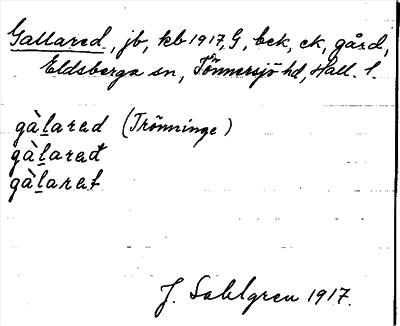 Gallared, jb, kb 1917, G, bek, ek, gård,
Eldsberga sn, Tönnersjö hd, Hall. l.
gàḻarad (Trönninge)
gàḻarad
gàḻarat
J. Sahlgren 1917.